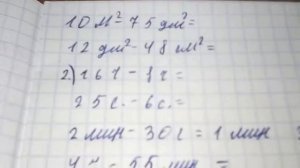 10 м² - 75 дм² =
12 дм² - 48 м² =
2) 16 ч - 8 ч =
25 с. - 6 с. =
2 мин - 30 с = 1 мин
4 ч - 55 мин =